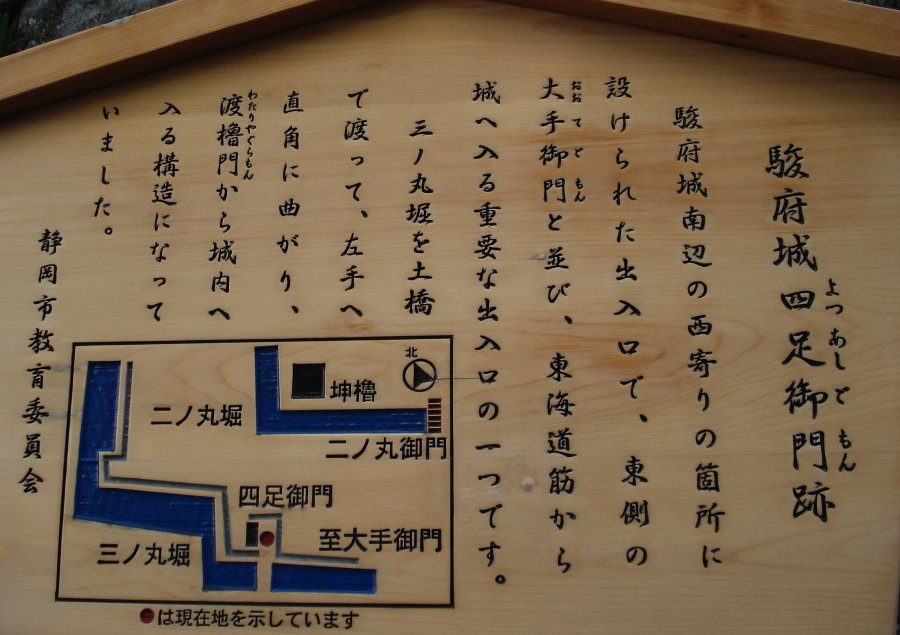 駿府城四足御門跡
よつあしともん
駿府城南辺の西寄りの箇所に
設けられた出入口で、東側の
大手御門と並び、東海道筋から
おおてともん
城へ入る重要な出入口の一つです。
三ノ丸堀を土橋
で渡って、左手へ
直角に曲がり、
渡櫓門から城内へ
わたりやぐらもん
入る構造になって
いました。
静岡市教育委員会
北
坤櫓
二ノ丸堀
二ノ丸御門
四足御門
至大手御門
三ノ丸堀
●は現在地を示しています